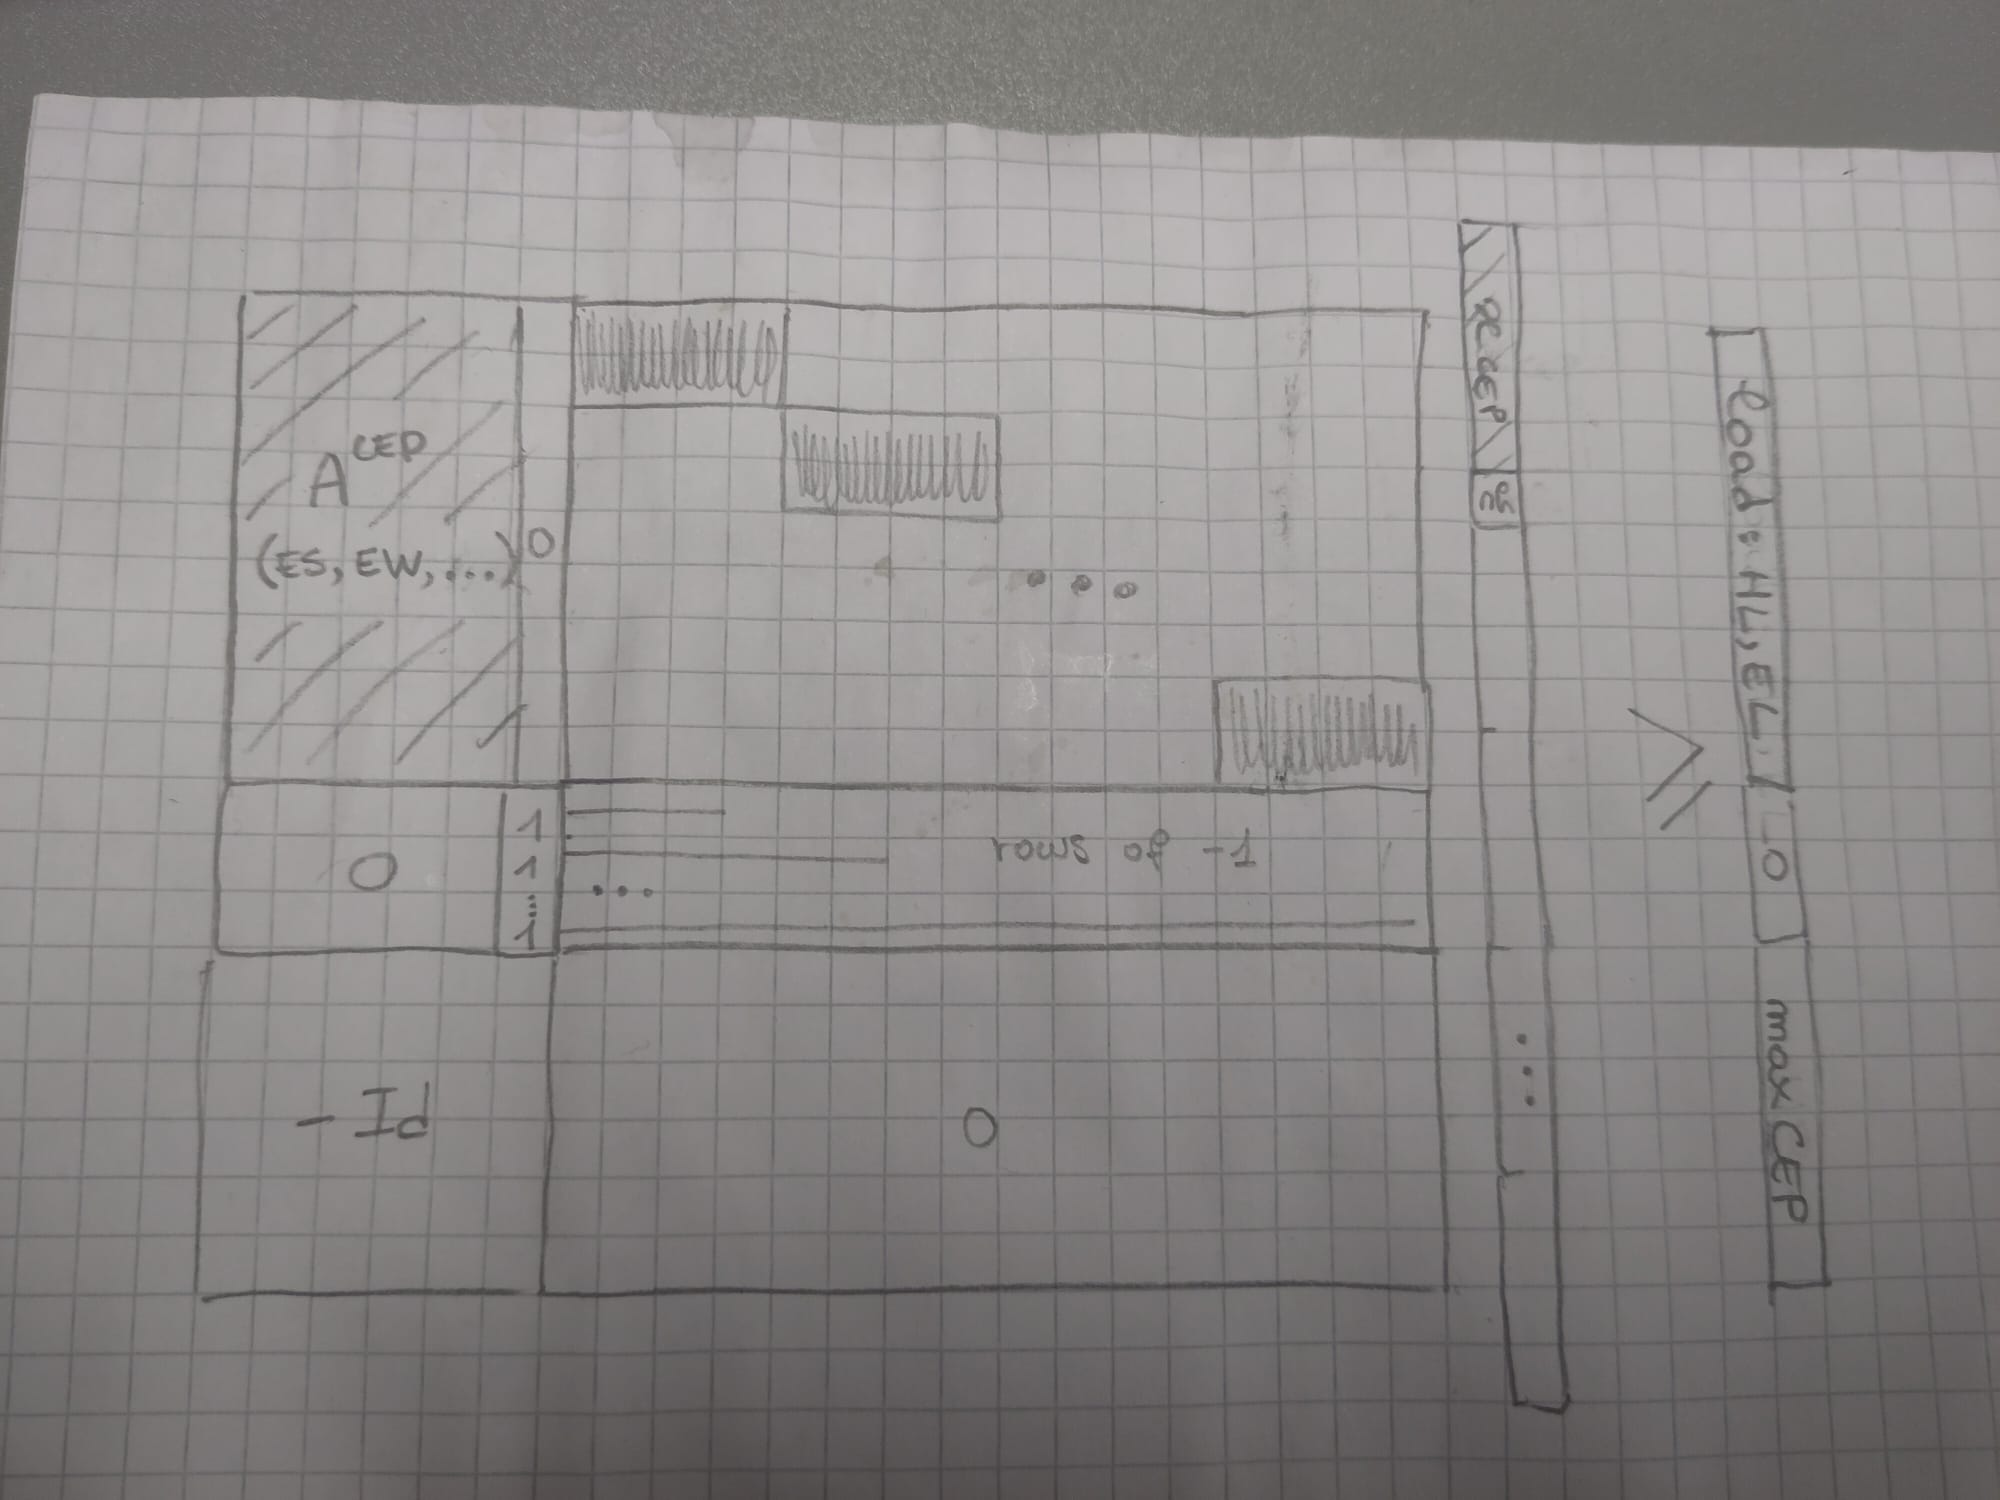 A^CEP
(ES, EW, ...)
0
...
0
1
1
...
1
rows of -1
...
- Id
0
x CEP
...
≥
load: HL, EL,
0
max CEP